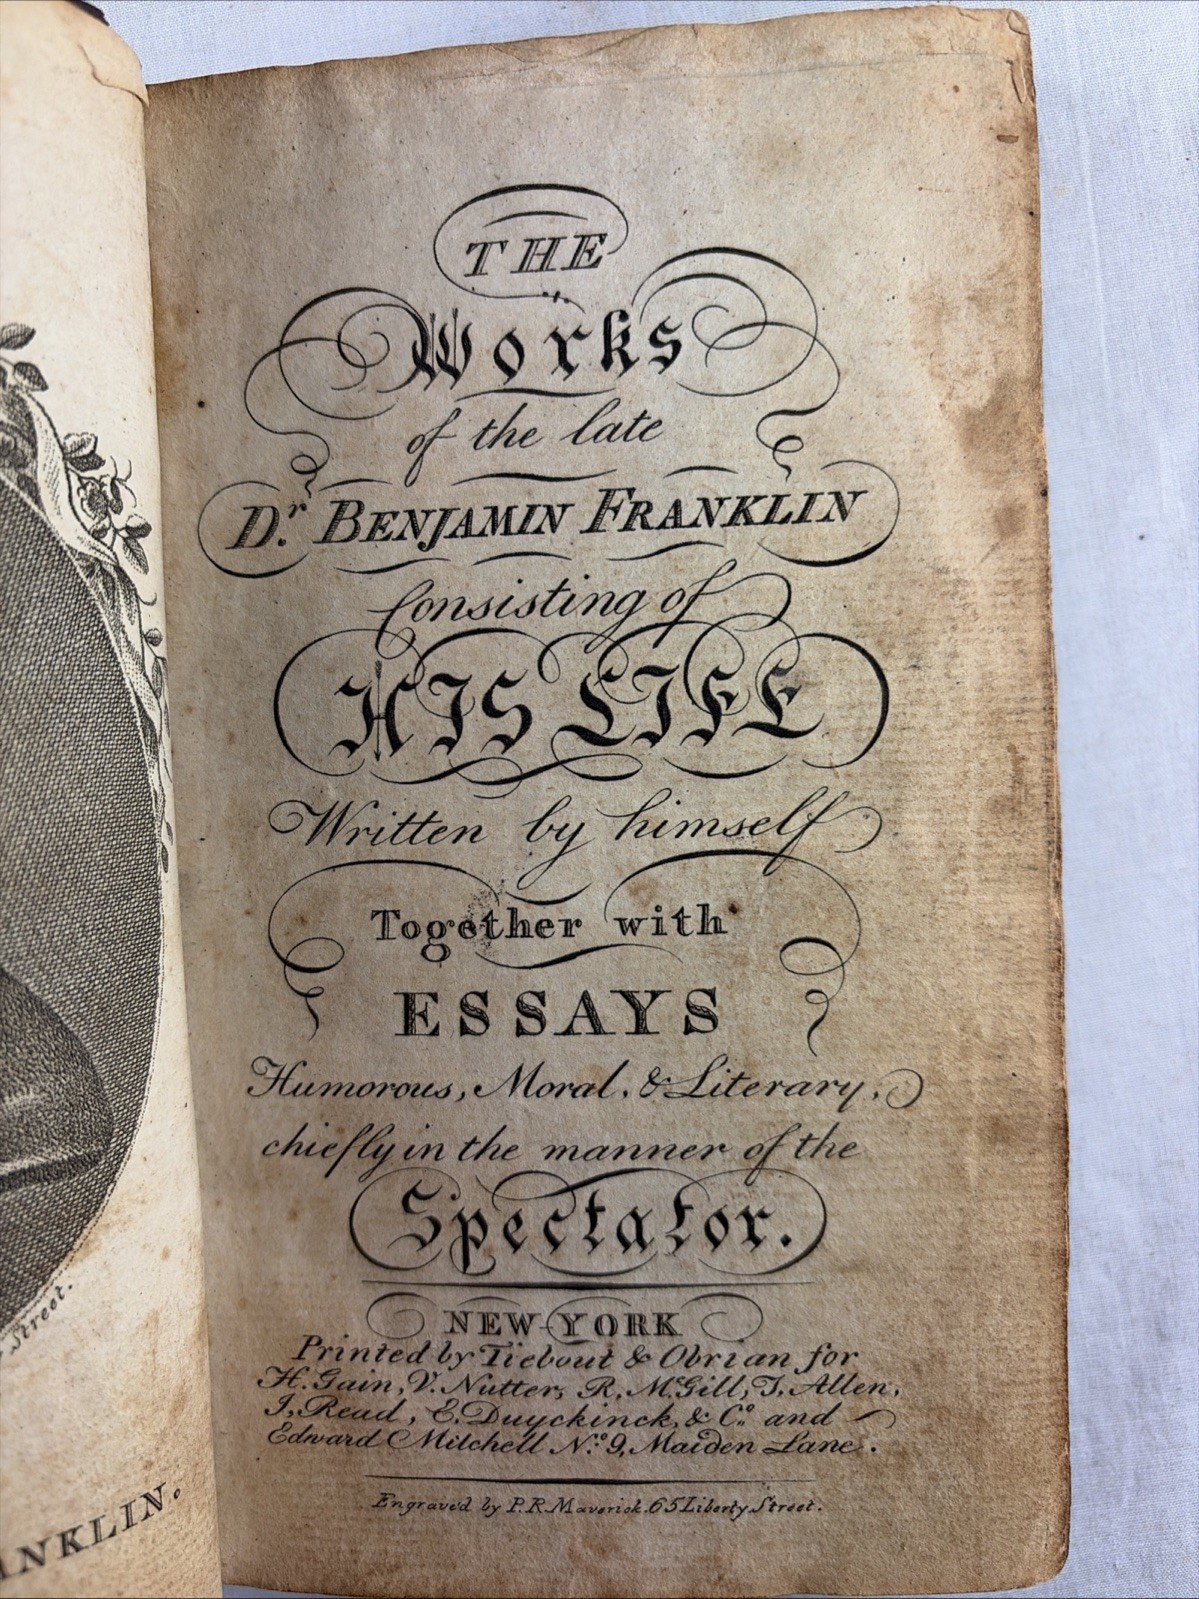 THE
Works
of the late
Dr. BENJAMIN FRANKLIN
Consisting of
HIS LIFE
Written by himself
Together with
ESSAYS
Humorous, Moral, & Literary,
chiefly in the manner of the
Spectator.
NEW-YORK
Printed by Tiebout & Obrian for
H. Gain, V. Nutter, R. McGill, T. Allen,
I. Read, E. Duyckinck, & Co. and
Edward Mitchell No. 9, Maiden Lane.
Engraved by P. R. Maverick. 65 Liberty Street.
Street.
ANKLIN.